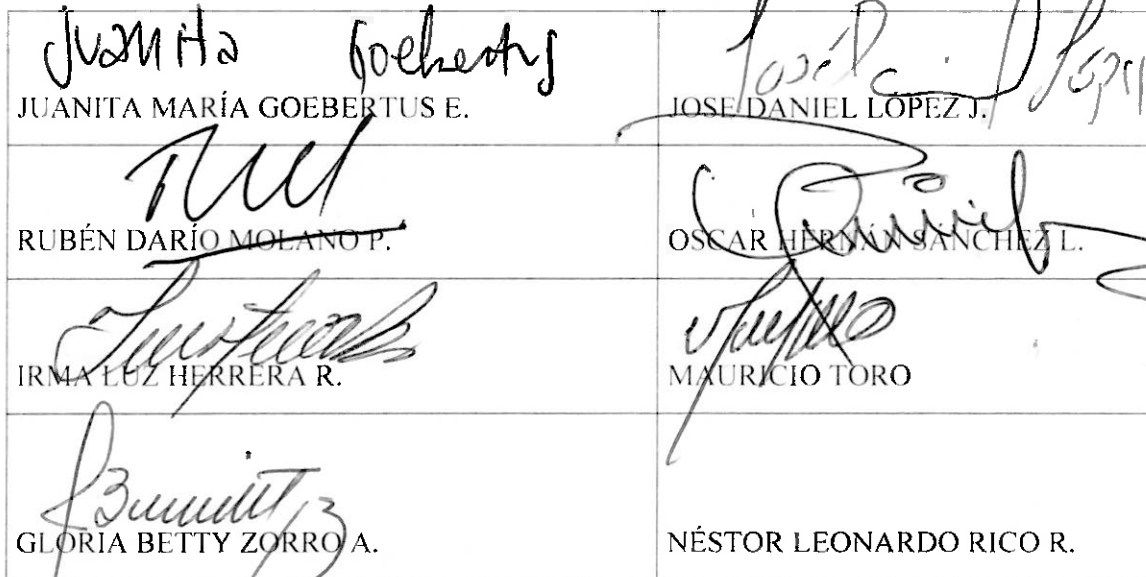 Juanita Goebertus
José Daniel López
JUANITA MARÍA GOEBERTUS E.
JOSE DANIEL LÓPEZ J.
RUBÉN DARÍO MOLANO P.
OSCAR HERNÁN SÁNCHEZ L.
IRMA LUZ HERRERA R.
MAURICIO TORO
GLORIA BETTY ZORRO A.
NÉSTOR LEONARDO RICO R.